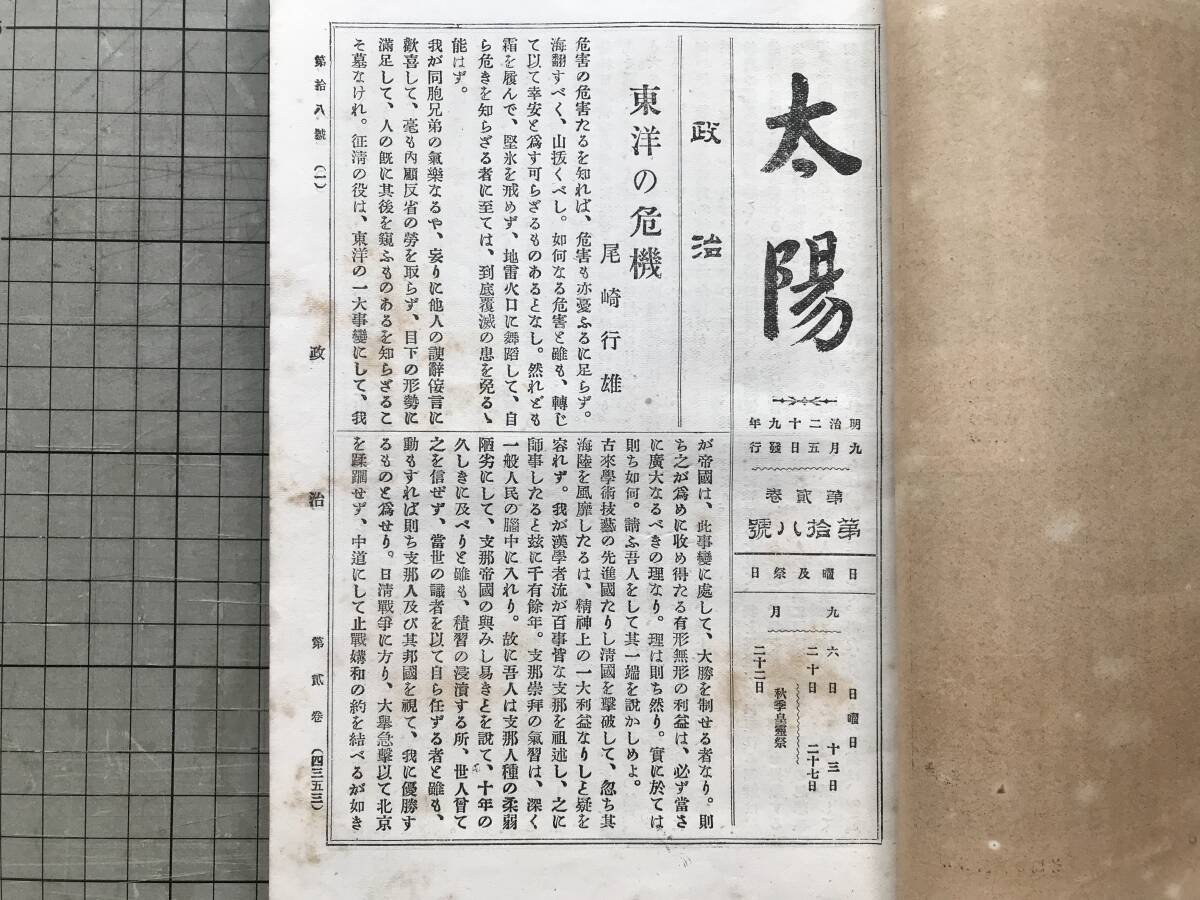 太陽
明治二十九年
九月五日發行
第貳卷
第拾八號
日曜及祭日
九月
日曜日
六日 十三日
二十日 二十七日
秋季皇靈祭
二十二日
政治
東洋の危機
尾崎行雄
危害の危害たるを知れば、危害も亦憂ふるに足らず。
海翻すべく、山拔くべし。如何なる危害と雖も、轉じ
て以て幸安と爲す可らざるものあるとなし。然れども
霜を履んで、堅氷を戒めず、地雷火口に舞蹈して、自
ら危きを知らざる者に至ては、到底覆滅の患を免るゝ
能はず。
我が同胞兄弟の氣樂なるや、妄りに他人の諛辭佞言に
歡喜して、毫も內顧反省の勞を取らず、目下の形勢に
滿足して、人の旣に其後を窺ふものあるを知らざるこ
そ墓なけれ。征淸の役は、東洋の一大事變にして、我
が帝國は、此事變に處して、大勝を制せる者なり。則
ち之が爲めに收め得たる有形無形の利益は、必ず當さ
に廣大なるべきの理なり。理は則ち然り。實に於ては
則ち如何。請ふ吾人をして其一端を說かしめよ。
古來學術技藝の先進國たりし淸國を擊破して、忽ち其
海陸を風靡したるは、精神上の一大利益なりしと疑を
容れず。我が漢學者流が百事皆な支那を祖述し、之に
師事したると玆に千有餘年。支那崇拜の氣習は、深く
一般人民の腦中に入れり。故に吾人は支那人種の柔弱
陋劣にして、支那帝國の與みし易きとを說て、十年の
久しきに及べりと雖も、積習の浸漬する所、世人曾て
之を信ぜず、當世の識者を以て自ら任ずる者と雖も、
動もすれば則ち支那人及び其邦國を視て、我に優勝す
るものと爲せり。日淸戰爭に方り、大擧急擊以て北京
を蹂躙せず、中道にして止戰媾和の約を結べるが如き
第拾八號 (一)
政治
第貳卷 (四三五三)